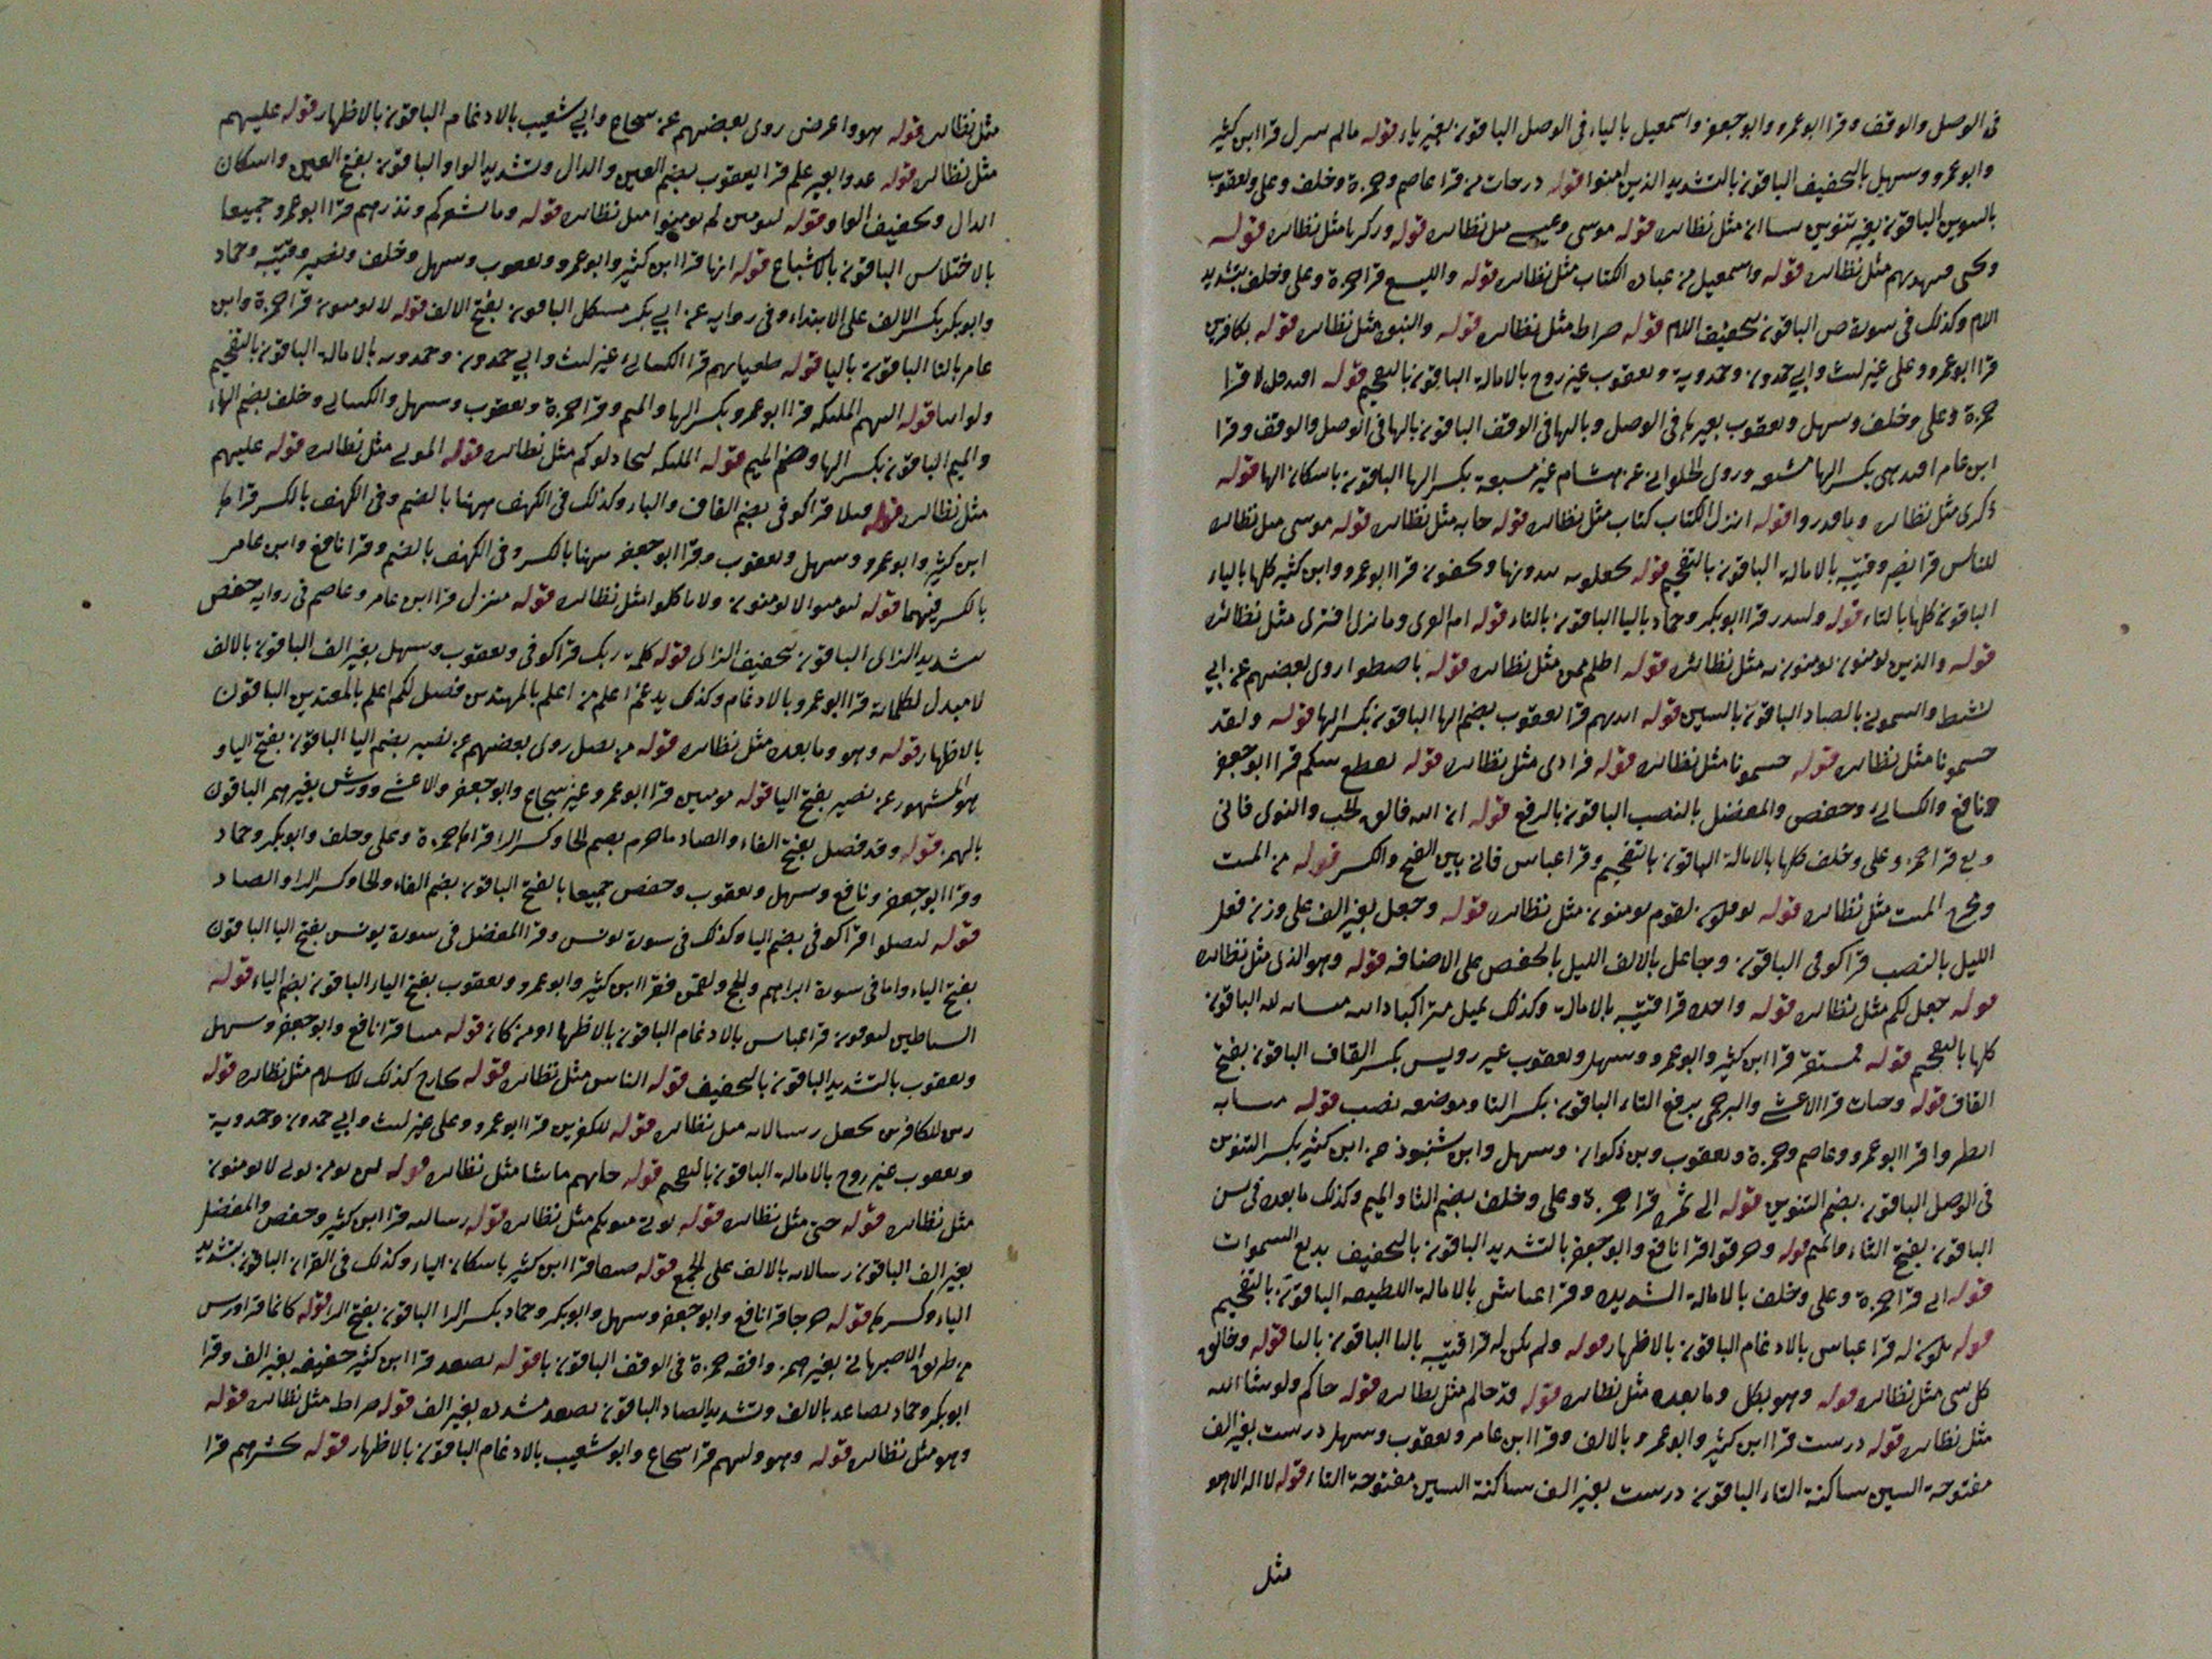 فى الوصل والوقف وقرا ابو عمرو وابو جعفر واسمعيل بالياء فى الوصل الباقون بغير ياء قوله مالم سرل قرا ابن كثير
وابو عمرو وسهل بالتخفيف الباقون بالتشديد الذين امنوا قوله درحات من قرا عاصم وحمزة وخلف وعلى ويعقوب
بالتنوين الباقون بغير تنوين مثل نظائره قوله موسى وعيسى مثل نظائره قوله وزكريا مثل نظائره قوله
ويحيى مثل نظائره قوله واسمعيل من عباده الكتاب مثل نظائره قوله واليسع قرا حمزة وعلى وخلف بتشديد
اللام وكذلك فى سورة ص الباقون بتخفيف اللام قوله صراط مثل نظائره قوله والنبوه مثل نظائره قوله بكافرين
قرا ابو عمرو وعلى غير ليث وابى حمدون وحمدويه ويعقوب غير روح بالامالة الباقون بالتفخيم قوله اقتده قل لا قرا
حمزة وعلى وخلف وسهل ويعقوب بغير هاء فى الوصل وبالها فى الوقف الباقون بالها فى الوصل والوقف وقرا
ابن عامر اقتدهى بكسر الها مشبعه وروى الحلوانى عن هشام غير مشبعة بكسر الها الباقون باسكان الها قوله
ذكرى مثل نظائره وما قدروا قوله انزل الكتاب كتاب مثل نظائره قوله جا به مثل نظائره قوله موسى مثل نظائره
للناس قرا نصير وقتيبه بالامالة الباقون بالتفخيم قوله يجعلونه يبدونها ويخفون قرا ابو عمرو وابن كثير كلها بالياء
الباقون كلها بالتاء قوله ولينذر قرا ابو بكر وحماد باليا الباقون بالتاء قوله ام القرى وما نزل افترى مثل نظائره
قوله والذين يؤمنون يؤمنون به مثل نظائره قوله اظلم ممن مثل نظائره قوله باسطوا روى بعضهم عن ابى
نشيط والشمونى بالصاد الباقون بالسين قوله ايديهم قرا يعقوب بضم الها الباقون بكسر الها قوله ولقد
جئتمونا مثل نظائره قوله جئتمونا مثل نظائره قوله فرادى مثل نظائره قوله تقطع بينكم قرا ابو جعفر
ونافع والكسائى وحفص والمفضل بالنصب الباقون بالرفع قوله ان الله فالق الحب والنوى فانى
وبلى قرا حمزه وعلى وخلف كلها بالامالة الباقون بالتفخيم وقرا عباس فانى بين الفتح والكسر قوله من الميت
ومخرج الميت مثل نظائره قوله توفكون لقوم يومنون مثل نظائره قوله وجعل بغير الف على وزن فعل
الليل بالنصب قرا كوفى الباقون وجاعل بالالف الليل بالخفض على الاضافه قوله وهو الذى مثل نظائره
قوله جعل لكم مثل نظائره قوله واحده قرا قتيبه بالامالة وكذلك يميل متراكبا دانيه الباقون
كلها بالتفخيم قوله فمستقر قرا ابن كثير وابو عمرو وسهل ويعقوب غير رويس بكسر القاف الباقون بفتح
القاف قوله وجنات قرا الاعشى والبرجمى برفع التاء الباقون بكسر التا وموضعه نصب قوله متشابه
انظروا قرا ابو عمرو وعاصم وحمزة ويعقوب وبن ذكوان وسهل وابن شنبوذ عن ابن كثير بكسر التنوين
فى الوصل الباقون بضم التنوين قوله الى ثمره قرا حمزة وعلى وخلف بضم الثا والميم وكذلك ما بعده فى يس
الباقون بفتح الثاء والميم قوله وخرقوا قرا نافع وابو جعفر بالتشديد الباقون بالتخفيف بديع السموات
قوله انى قرا حمزة وعلى وخلف بالامالة الشديده وقرا عباس بالامالة اللطيفه الباقون بالتفخيم
قوله يكون له قرا عباس بالادغام الباقون بالاظهار قوله ولم يكن له قرا قتيبه باليا الباقون بالتا قوله وخالق
كل شى مثل نظائره قوله وهو بكل وما بعده مثل نظائره قوله قد جاكم مثل نظائره قوله جاكم ولو شا الله
مثل نظائره قوله درست قرا ابن كثير وابو عمرو بالالف وقرا ابن عامر ويعقوب وسهل درست بغير الف
مفتوحة السين ساكنة التاء الباقون درست بغير الف ساكنة السين مفتوحة التاء قوله لا اله الا هو
مثل
مثل نظائره قوله هو واعرض روى بعضهم عن شجاع وابى شعيب بالادغام الباقون بالاظهار قوله عليهم
مثل نظائره قوله عدوا بغير علم قرا يعقوب بضم العين والدال وتشديد الواو الباقون بفتح العين واسكان
الدال وتخفيف الواو قوله ليومنن لم يومنوا مثل نظائره قوله وما يشعركم ونذرهم قرا ابو عمرو جميعا
بالاختلاس الباقون بالاشباع قوله انها قرا ابن كثير وابو عمرو ويعقوب وسهل وخلف ونصير وقتيبه وحماد
وابو بكر بكسر الالف على الابتداء وفى روايه عن ابى بكر مشكل الباقون بفتح الالف قوله لا يومنون قرا حمزة وابن
عامر بالتا الباقون باليا قوله طغيانهم قرا الكسائى غير ليث وابى حمدون وحمدويه بالامالة الباقون بالتفخيم
ولو اننا قوله اليهم الملئكه قرا ابو عمرو بكسر الها والميم وقرا حمزة ويعقوب وسهل والكسائى وخلف بضم الهاء
والميم الباقون بكسر الها وضم الميم قوله الملئكه ليجادلوكم مثل نظائره قوله الموتى مثل نظائره قوله عليهم
مثل نظائره قوله قبلا قرا كوفى بضم القاف والباء وكذلك فى الكهف ههنا بالضم وفى الكهف بالكسر قراها
ابن كثير وابو عمرو وسهل ويعقوب وقرا ابو جعفر ههنا بالكسر وفى الكهف بالضم وقرا نافع وابن عامر
بالكسر فيهما قوله ليومنوا لا يومنون ولا تاكلوا مثل نظائره قوله منزل قرا ابن عامر وعاصم فى روايه حفص
بتشديد الزاى الباقون بتخفيف الزاى قوله كلمة ربك قرا كوفى ويعقوب وسهل بغير الف الباقون بالالف
لا مبدل لكلماته قرا ابو عمرو بالادغام وكذلك يدغم اعلم من اعلم بالمهتدين فصل لكم اعلم بالمعتدين الباقون
بالاظهار قوله وهو وما بعده مثل نظائره قوله من يضل روى بعضهم عن نصير بضم اليا الباقون بفتح اليا و
هو المشهور عن نصير بفتح اليا قوله مومنين قرا ابو عمرو غير شجاع وابو جعفر والاعشى وورش بغير همز الباقون
بالهمز قوله وقد فصل بفتح الفاء والصاد ما حرم بضم الحا وكسر الرا قراها حمزة وعلى وخلف وابو بكر وحماد
وقرا ابو جعفر ونافع وسهل ويعقوب وحفص جميعا بالفتح الباقون بضم الفاء والحا وكسر الرا والصاد
قوله ليضلوا قرا كوفى بضم اليا وكذلك فى سورة يونس وقرا المفضل فى سورة يونس بفتح اليا الباقون
بفتح الياء واما فى سورة ابراهيم والحج ولقمن فقرا ابن كثير وابو عمرو ويعقوب بفتح الياء الباقون بضم الياء قوله
الشياطين ليوحون قرا عباس بالادغام الباقون بالاظهار او من كان قوله ميتا قرا نافع وابو جعفر وسهل
ويعقوب بالتشديد الباقون بالتخفيف قوله الناس مثل نظائره قوله بخارج كذلك للاسلام مثل نظائره قوله
زين للكافرين يجعل رسالاته مثل نظائره قوله للكفرين قرا ابو عمرو وعلى غير ليث وابى حمدون وحمدوية
ويعقوب غير روح بالامالة الباقون بالتفخيم قوله جاتهم ما يشا مثل نظائره قوله لن نومن نوتى لا يومنون
مثل نظائره قوله حتى مثل نظائره قوله نوتى مثويكم مثل نظائره قوله رسالته قرا ابن كثير وحفص والمفضل
بغير الف الباقون رسالاته بالالف على الجمع قوله ضيقا قرا ابن كثير باسكان الياء وكذلك فى الفرقان الباقون بتشديد
الياء وكسرها قوله حرجا قرا نافع وابو جعفر وسهل وابو بكر وحماد بكسر الرا الباقون بفتح الرا قوله كانما قرا ورش
من طريق الاصبهانى بغير همز وافقه حمزة فى الوقف الباقون با قوله يصعد قرا ابن كثير خفيفه بغير الف وقرا
ابو بكر وحماد يصاعد بالالف وتشديد الصاد الباقون يصعد مشدده بغير الف قوله صراط مثل نظائره قوله
وهو مثل نظائره قوله وهو وليهم قرا شجاع وابو شعيب بالادغام الباقون بالاظهار قوله نحشرهم قرا